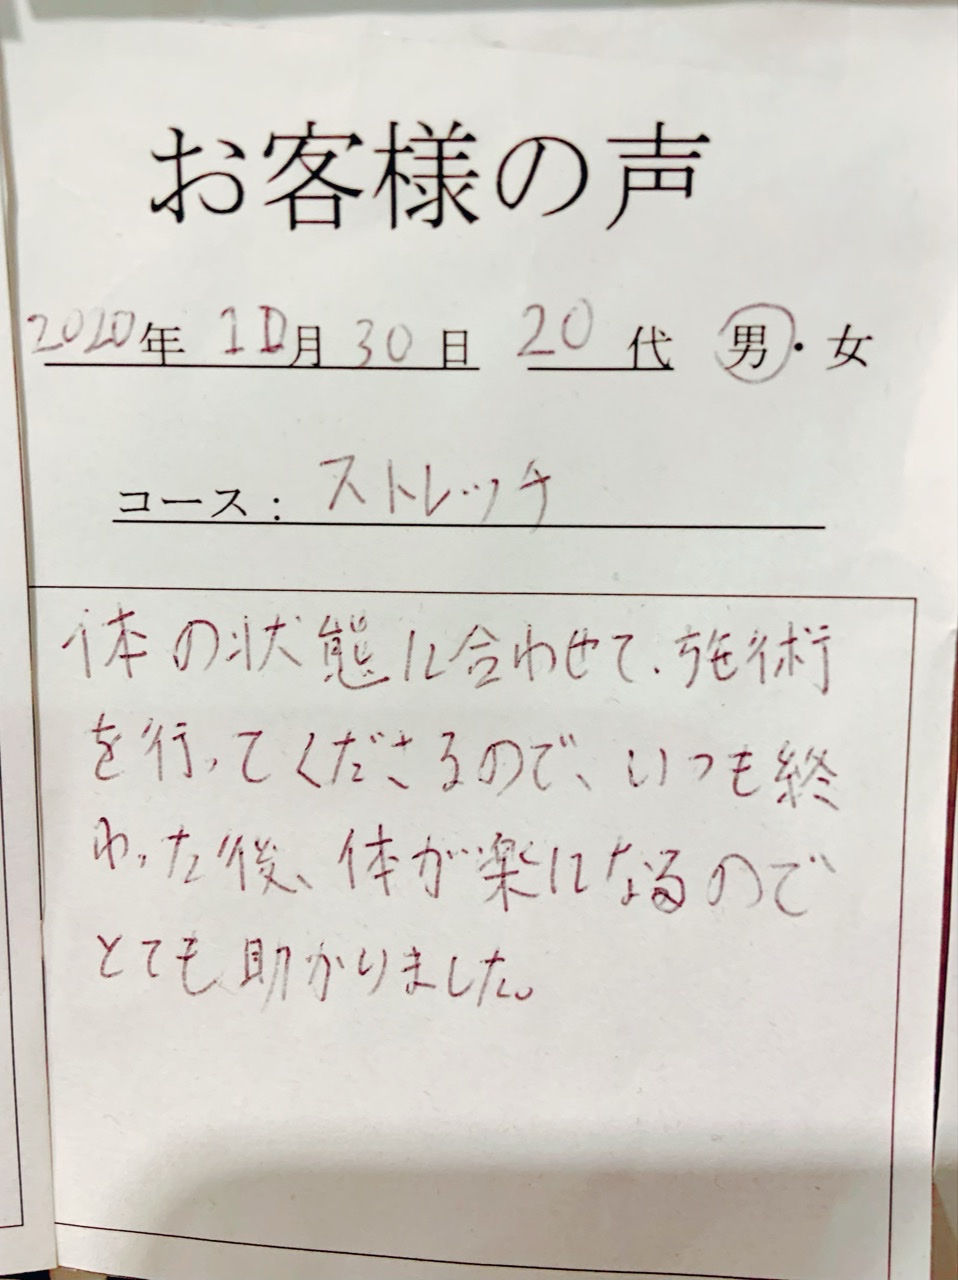 お客様の声
2020年 10月 30日 20代 男・女
コース: ストレッチ
体の状態に合わせて、施術
を行ってくださるので、いつも終
わった後、体が楽になるので
とても助かりました。